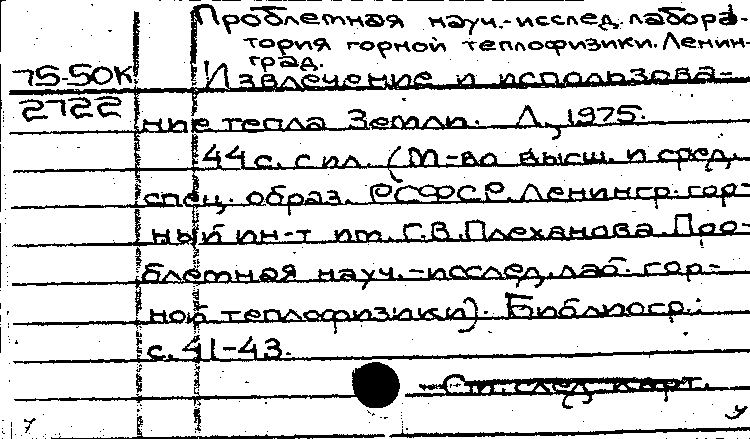 Проблемная науч.-исслед. лабора-
тория горной теплофизики. Ленин-
град.
75-50К
2722
Извлечение и использова-
ние тепла Земли. Л., 1975.
44 с. с ил. (М-во высш. и сред.
спец. образ. РСФСР. Ленингр. гор-
ный ин-т им. Г.В. Плеханова. Про-
блемная науч.-исслед. лаб. гор-
ной теплофизики). Библиогр.:
с. 41-43.
См. след. карт.